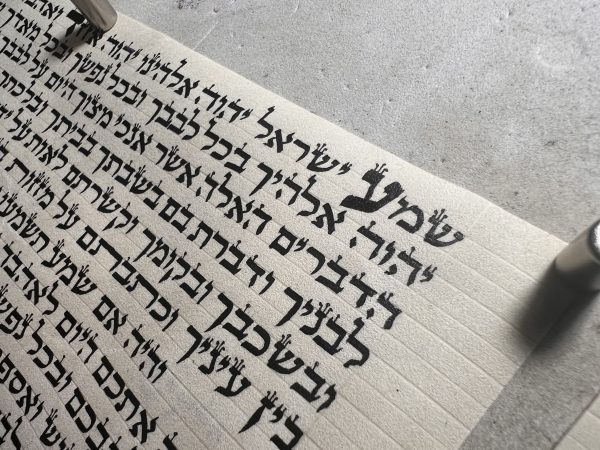 שמע ישראל יהוה אלהינו יהוה אחד
יהוה אלהיך בכל לבבך ובכל נפשך ובכל מאדך
הדברים האלה אשר אנכי מצוך היום על לבבך
לבניך ודברת בם בשבתך בביתך ובלכתך
ובשכבך ובקומך וקשרתם לאות על
בין עיניך וכתבתם על מזזות
והיה אם שמע תשמעו
אתכם היום לאהבה
ובכל